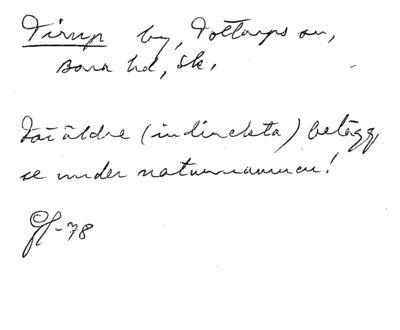 Tirup by, Tottarps sn,
Bara hd, Sk.
För äldre (indirekta) belägg,
se under naturnamnen!
GH-78